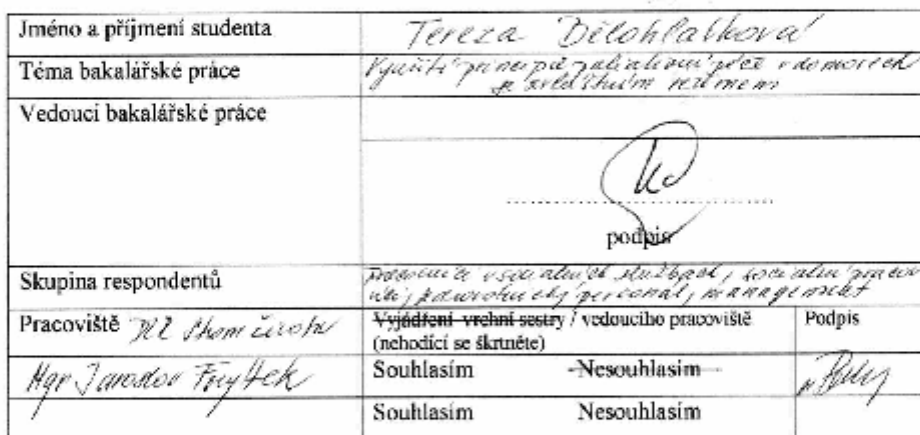 Jméno a příjmení studenta Tereza Bělohlavková
Téma bakalářské práce Využití principů paliativní péče v domovech
se zvláštním režimem
Vedoucí bakalářské práce
podpis
Skupina respondentů pracovníci v sociálních službách, sociální pracov
níci, zdravotnický personál, management
Pracoviště Vyjádření vrchní sestry / vedoucího pracoviště Podpis
(nehodící se škrtněte)
Mgr Jaroslav Souhlasím Nesouhlasím
Souhlasím Nesouhlasím